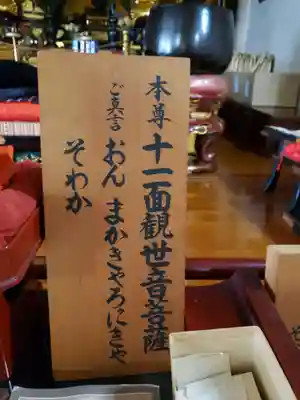 本尊 十一面觀世音菩薩
ご真言 おん まかきゃろにきゃ
そわか